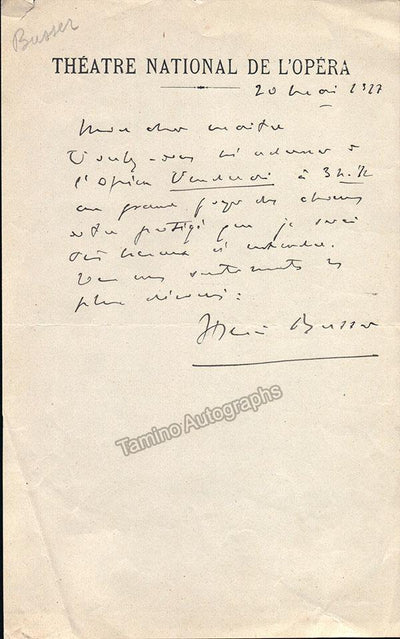 Busser
THÉATRE NATIONAL DE L'OPÉRA
20 Mai 1927
Mon cher maître
Voulez-vous m'adresser à
l'Opéra Vendredi à 3 h. ½
au grand foyer des chœurs
votre protégé que je serai
très heureux d'entendre.
sentiments les
plus dévoués :
Henri Busser
Tamino Autographs